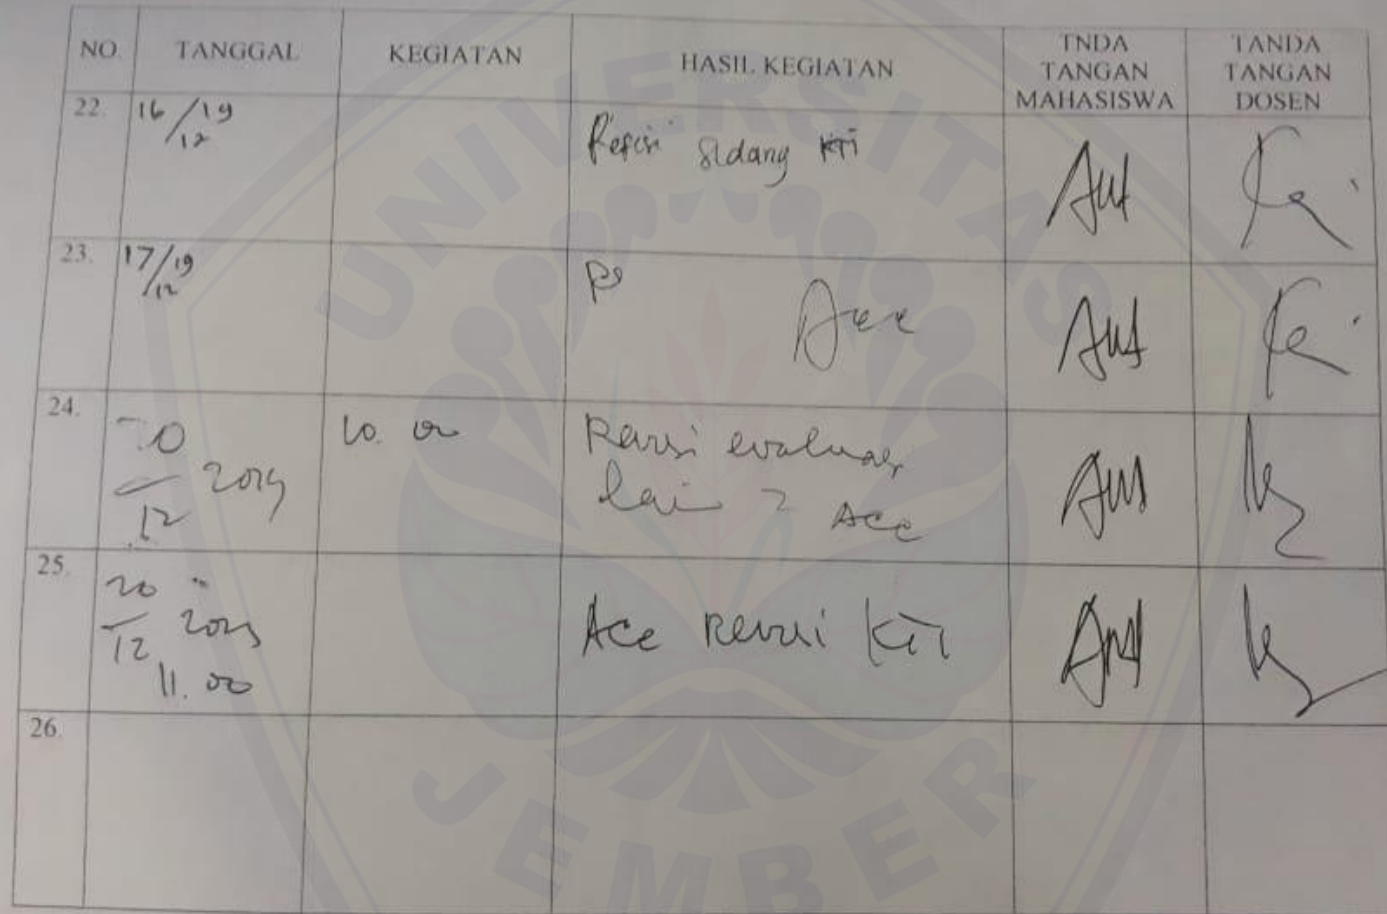 NO. TANGGAL KEGIATAN HASIL KEGIATAN TNDA TANGAN MAHASISWA TANDA TANGAN DOSEN
22. 16/12/19 sidang KTI
23. 17/12/19 Acc
24. 12 2019 10.00 Revisi evaluasi
lain2 Acc
25. 20
12 2019 Acc Revisi KTI
11.00
26.
UNIVERSITAS
JEMBER